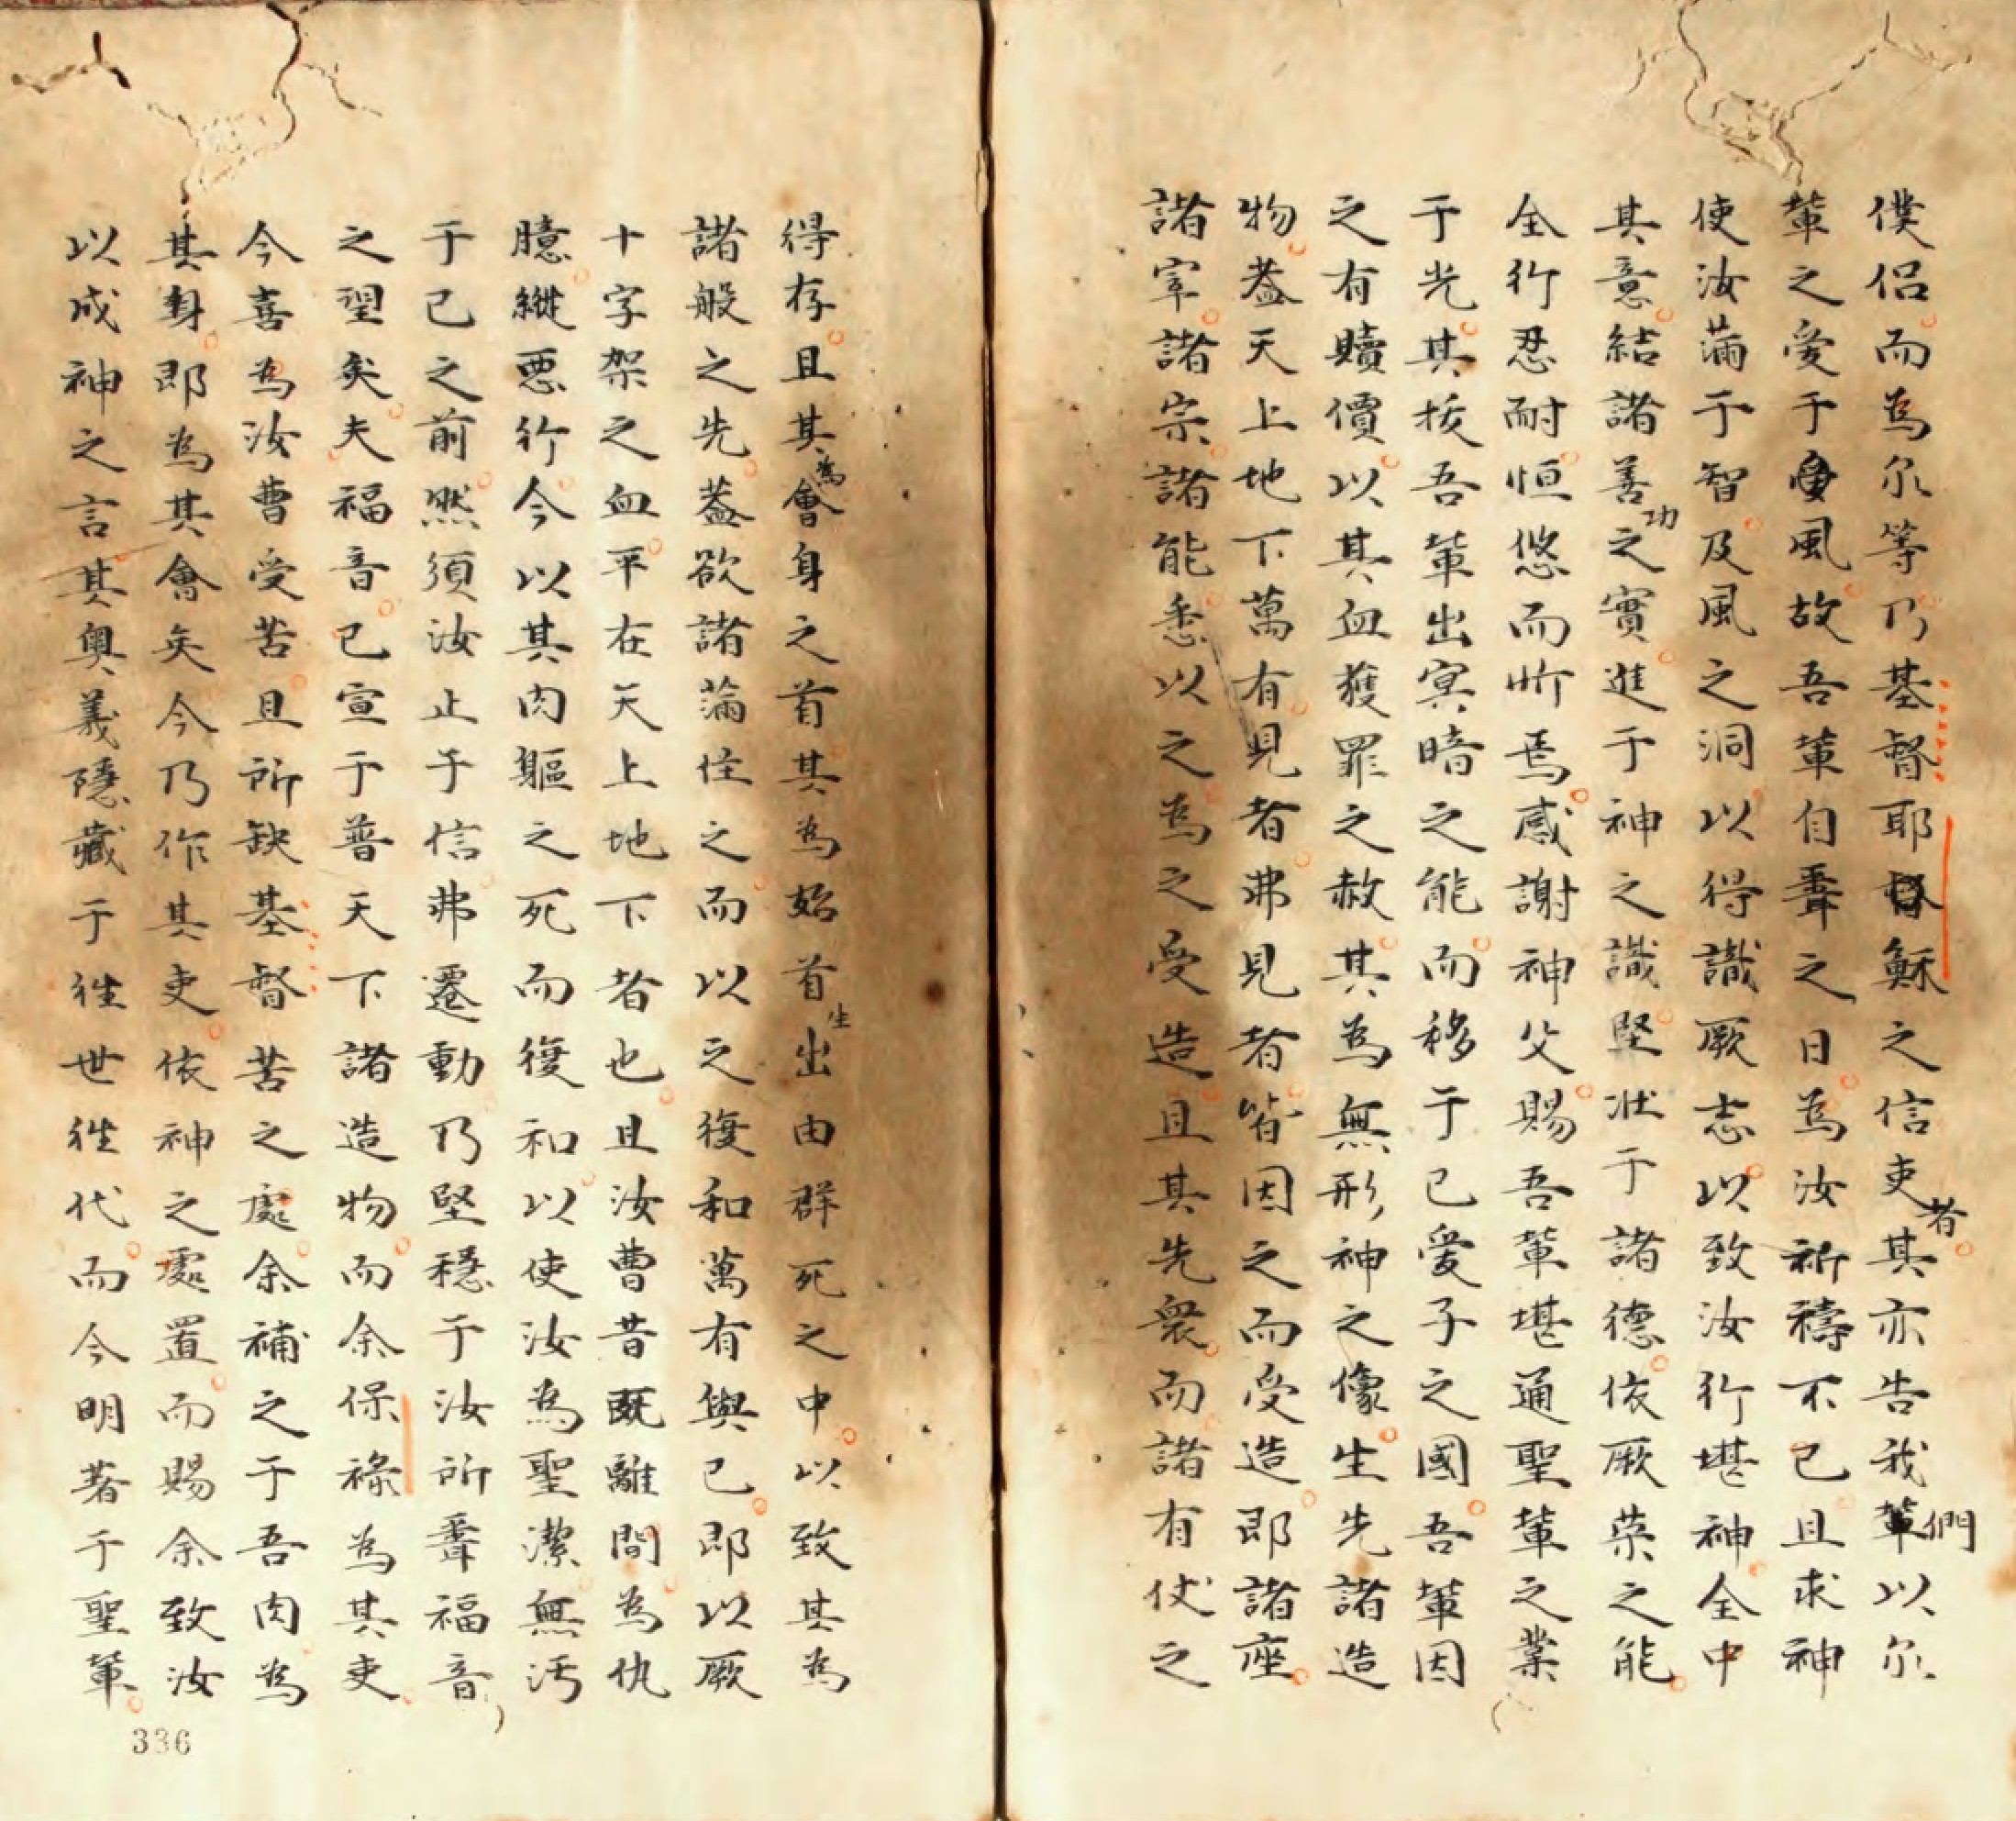 僕侶而為尔等乃基督耶穌之信吏者其亦告我輩們以尔
輩之愛于風故吾輩自聽之日為汝祈禱不已且求神
使汝滿于智及風之洞以得識厥志以致汝行堪神全中
其意結諸善功之實進于神之識堅壯于諸德依厥榮之能
全行忍耐恒悠而忻焉感謝神父賜吾輩堪通聖輩之業
于光其拔吾輩出冥暗之能而移于己愛子之國吾輩因
之有贖價以其血獲罪之赦其為無形神之像生先諸造
物蓋天上地下萬有見者弗見者皆因之而受造即諸座
諸宰諸宗諸能悉以之為之受造且其先衆而諸有仗之
得存且其為會身之首其為始首生出由群死之中以致其為
諸般之先蓋欲諸滿恠之而以之復和萬有與己即以厥
十字架之血平在天上地下者也且汝曹昔既離間為仇
臆縱悪行今以其肉軀之死而復和以使汝為聖潔無污
于己之前然須汝止于信弗遷動乃堅穩于汝所聽福音
之望矣夫福音已宣于普天下諸造物而余保祿為其吏
今喜為汝曹受苦且所缺基督苦之處余補之于吾肉為
其身即為其會矣今乃作其吏依神之處置而賜余致汝
以成神之言其奧義隱藏于徃世徃代而今明著于聖輩
336